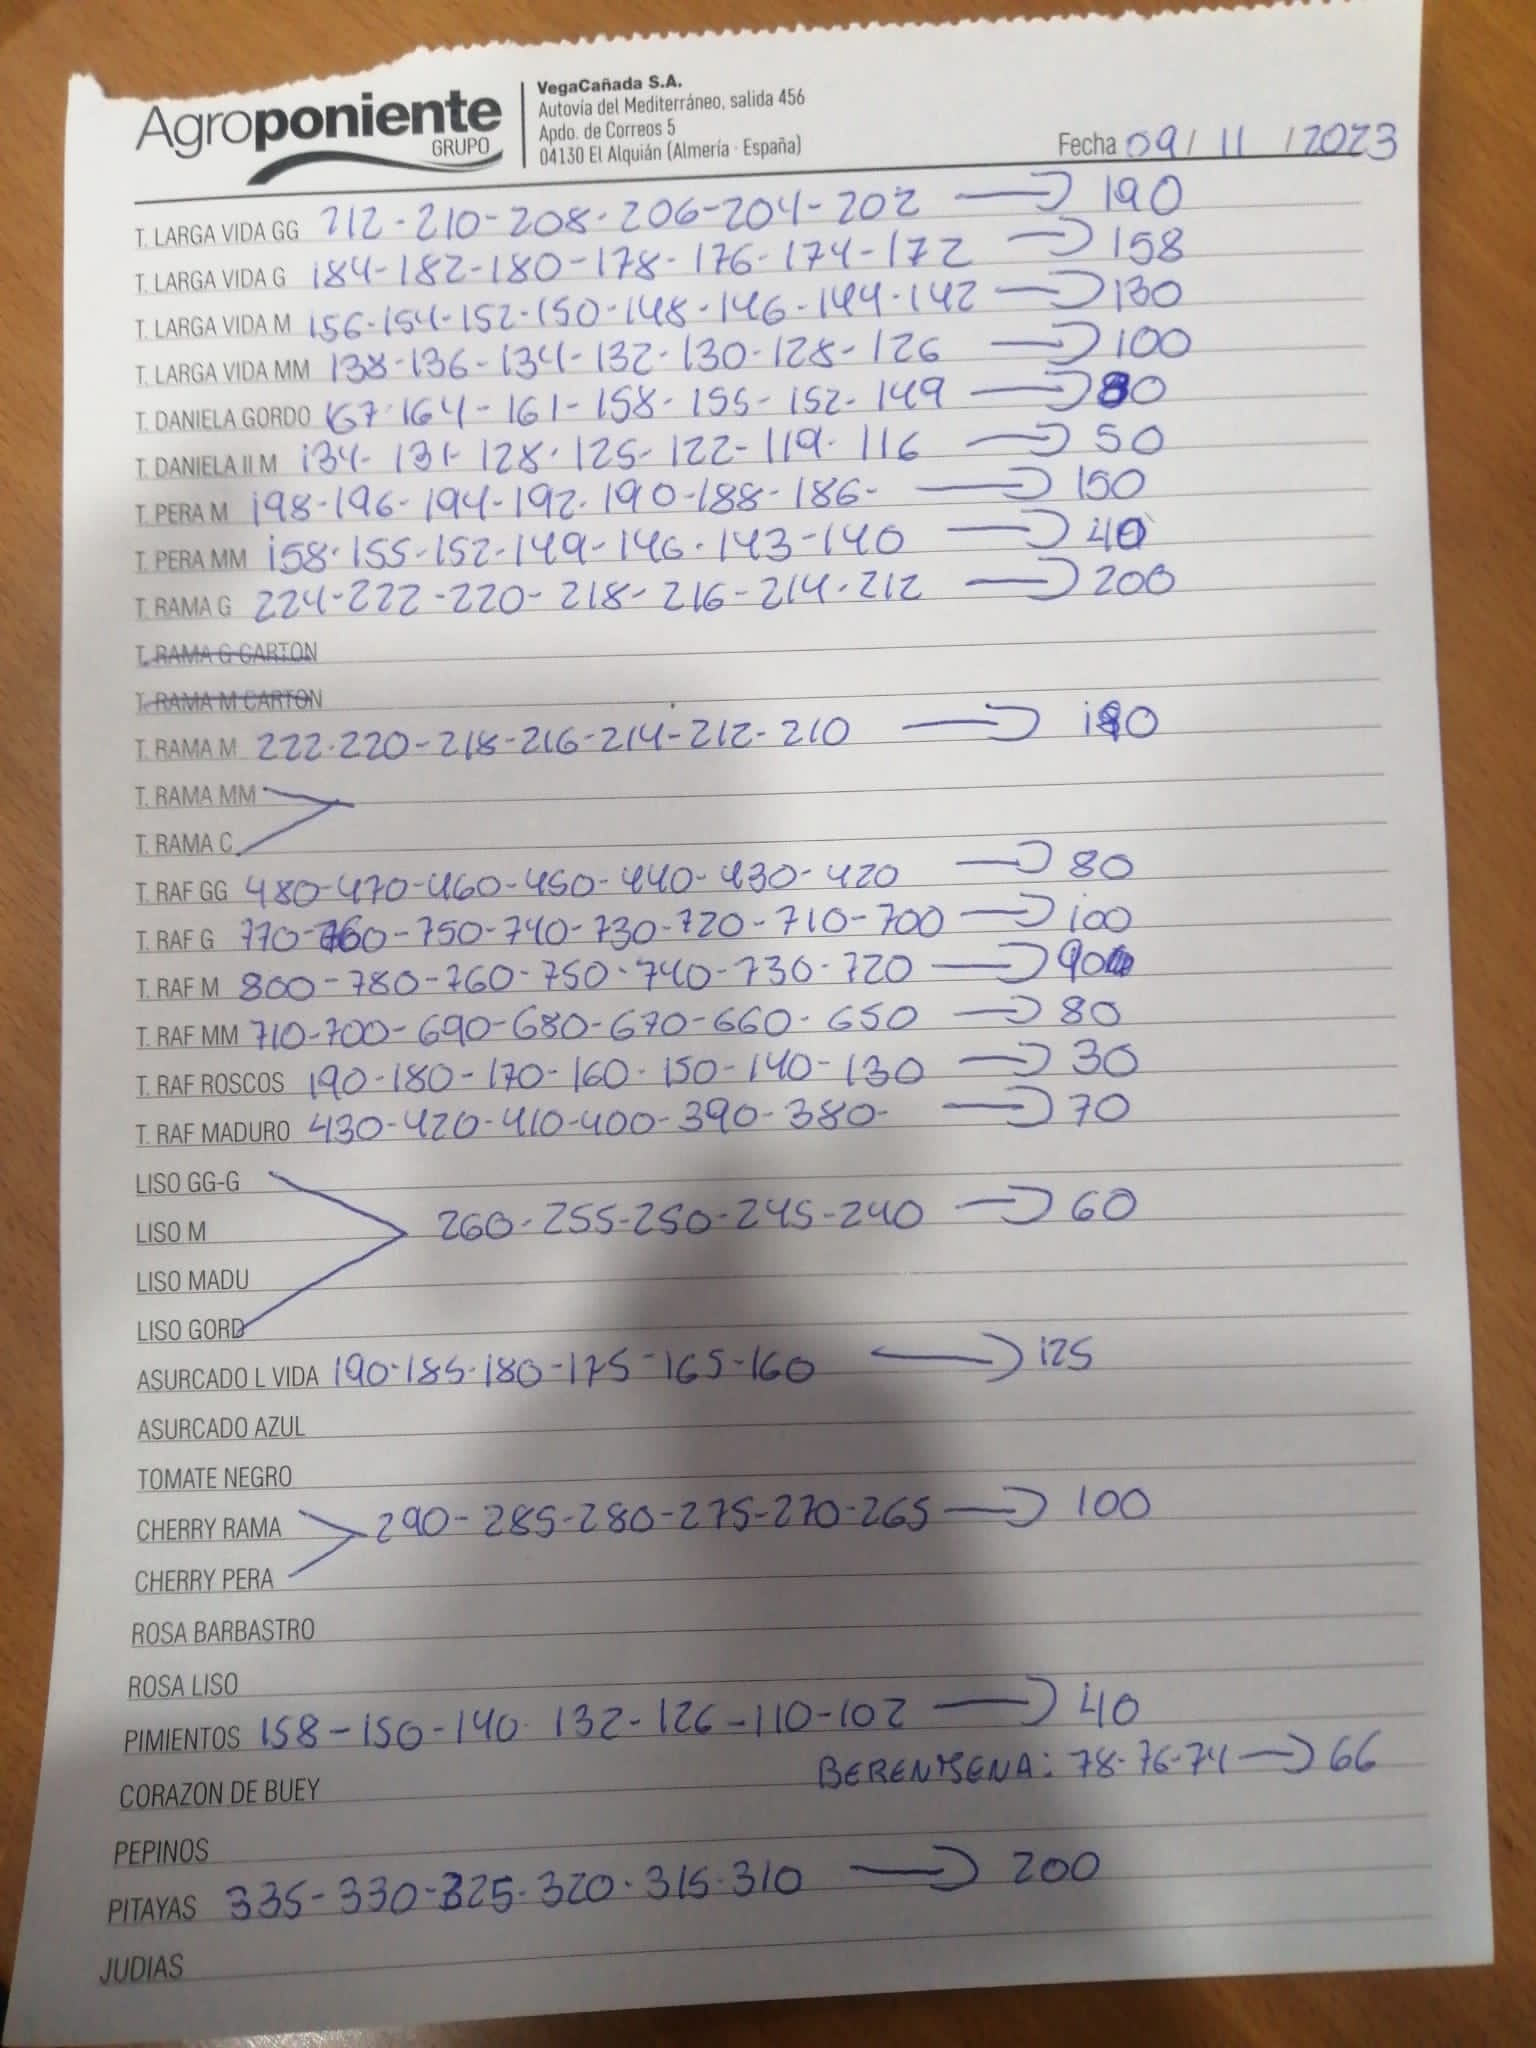 Agroponiente
GRUPO
VegaCañada S.A.
Autovía del Mediterráneo, salida 456
Apdo. de Correos 5
04130 El Alquián (Almería · España)
Fecha 09/11/2023
T. LARGA VIDA GG 212-210-208-206-204-202 → 190
T. LARGA VIDA G 184-182-180-178-176-174-172 → 158
T. LARGA VIDA M 156-154-152-150-148-146-144-142 → 130
T. LARGA VIDA MM 138-136-134-132-130-128-126 → 100
T. DANIELA GORDO 167-164-161-158-155-152-149 → 80
T. DANIELA II M 134-131-128-125-122-119-116 → 50
T. PERA M 198-196-194-192-190-188-186- → 150
T. PERA MM 158-155-152-149-146-143-140 → 40
T. RAMA G 224-222-220-218-216-214-212 → 200
T. RAMA G CARTON
T. RAMA M CARTON
T. RAMA M 222-220-218-216-214-212-210 →
T. RAMA MM
T. RAMA C
T. RAF GG 480-470-460-450-440-430-420 → 80
T. RAF G 770-760-750-740-730-720-710-700 → 100
T. RAF M 800-780-760-750-740-730-720 → 90
T. RAF MM 710-700-690-680-670-660-650 → 80
T. RAF ROSCOS 190-180-170-160-150-140-130 → 30
T. RAF MADURO 430-420-410-400-390-380- → 70
LISO GG-G
LISO M 260-255-250-245-240 → 60
LISO MADU
LISO GORD
ASURCADO L VIDA 190-185-180-175-165-160 → 125
ASURCADO AZUL
TOMATE NEGRO
CHERRY RAMA 290-285-280-275-270-265 → 100
CHERRY PERA
ROSA BARBASTRO
ROSA LISO
PIMIENTOS 158-150-140-132-126-110-102 → 40
BERENJENA: 78-76-74 → 66
CORAZON DE BUEY
PEPINOS
PITAYAS 335-330-325-320-315-310 → 200
JUDIAS